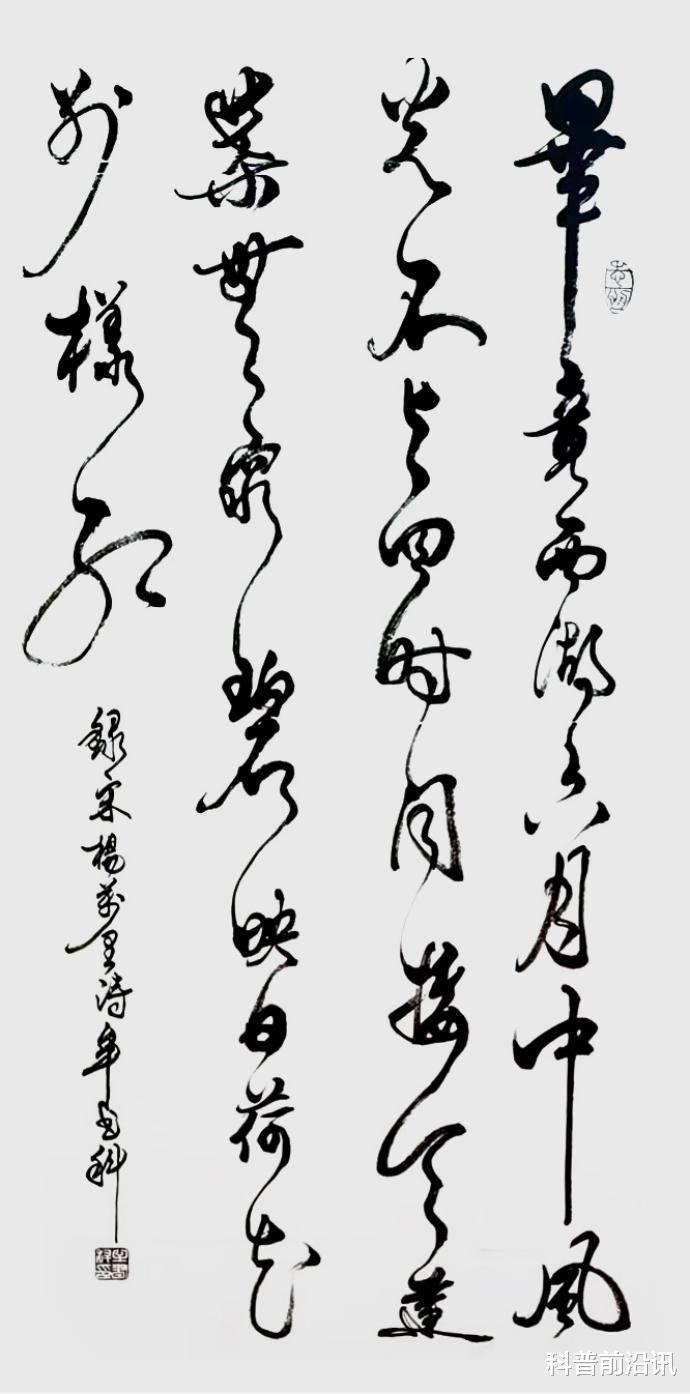 畢竟西湖六月中風
光不与四时同接天蓮
葉無窮碧映日荷花
别樣红
録宋楊萬里詩牟科
科普前沿讯